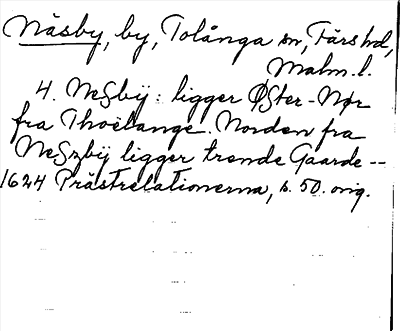 Näsby, by, Tolånga sn, Färs hd,
Malm. l.
4. Neßbÿ: ligger Øster-Nør
fra Thoëlange. Norden fra
Neßzbÿ ligger trende Gaarde --
1624 Prästrelationerna, s. 50. orig.